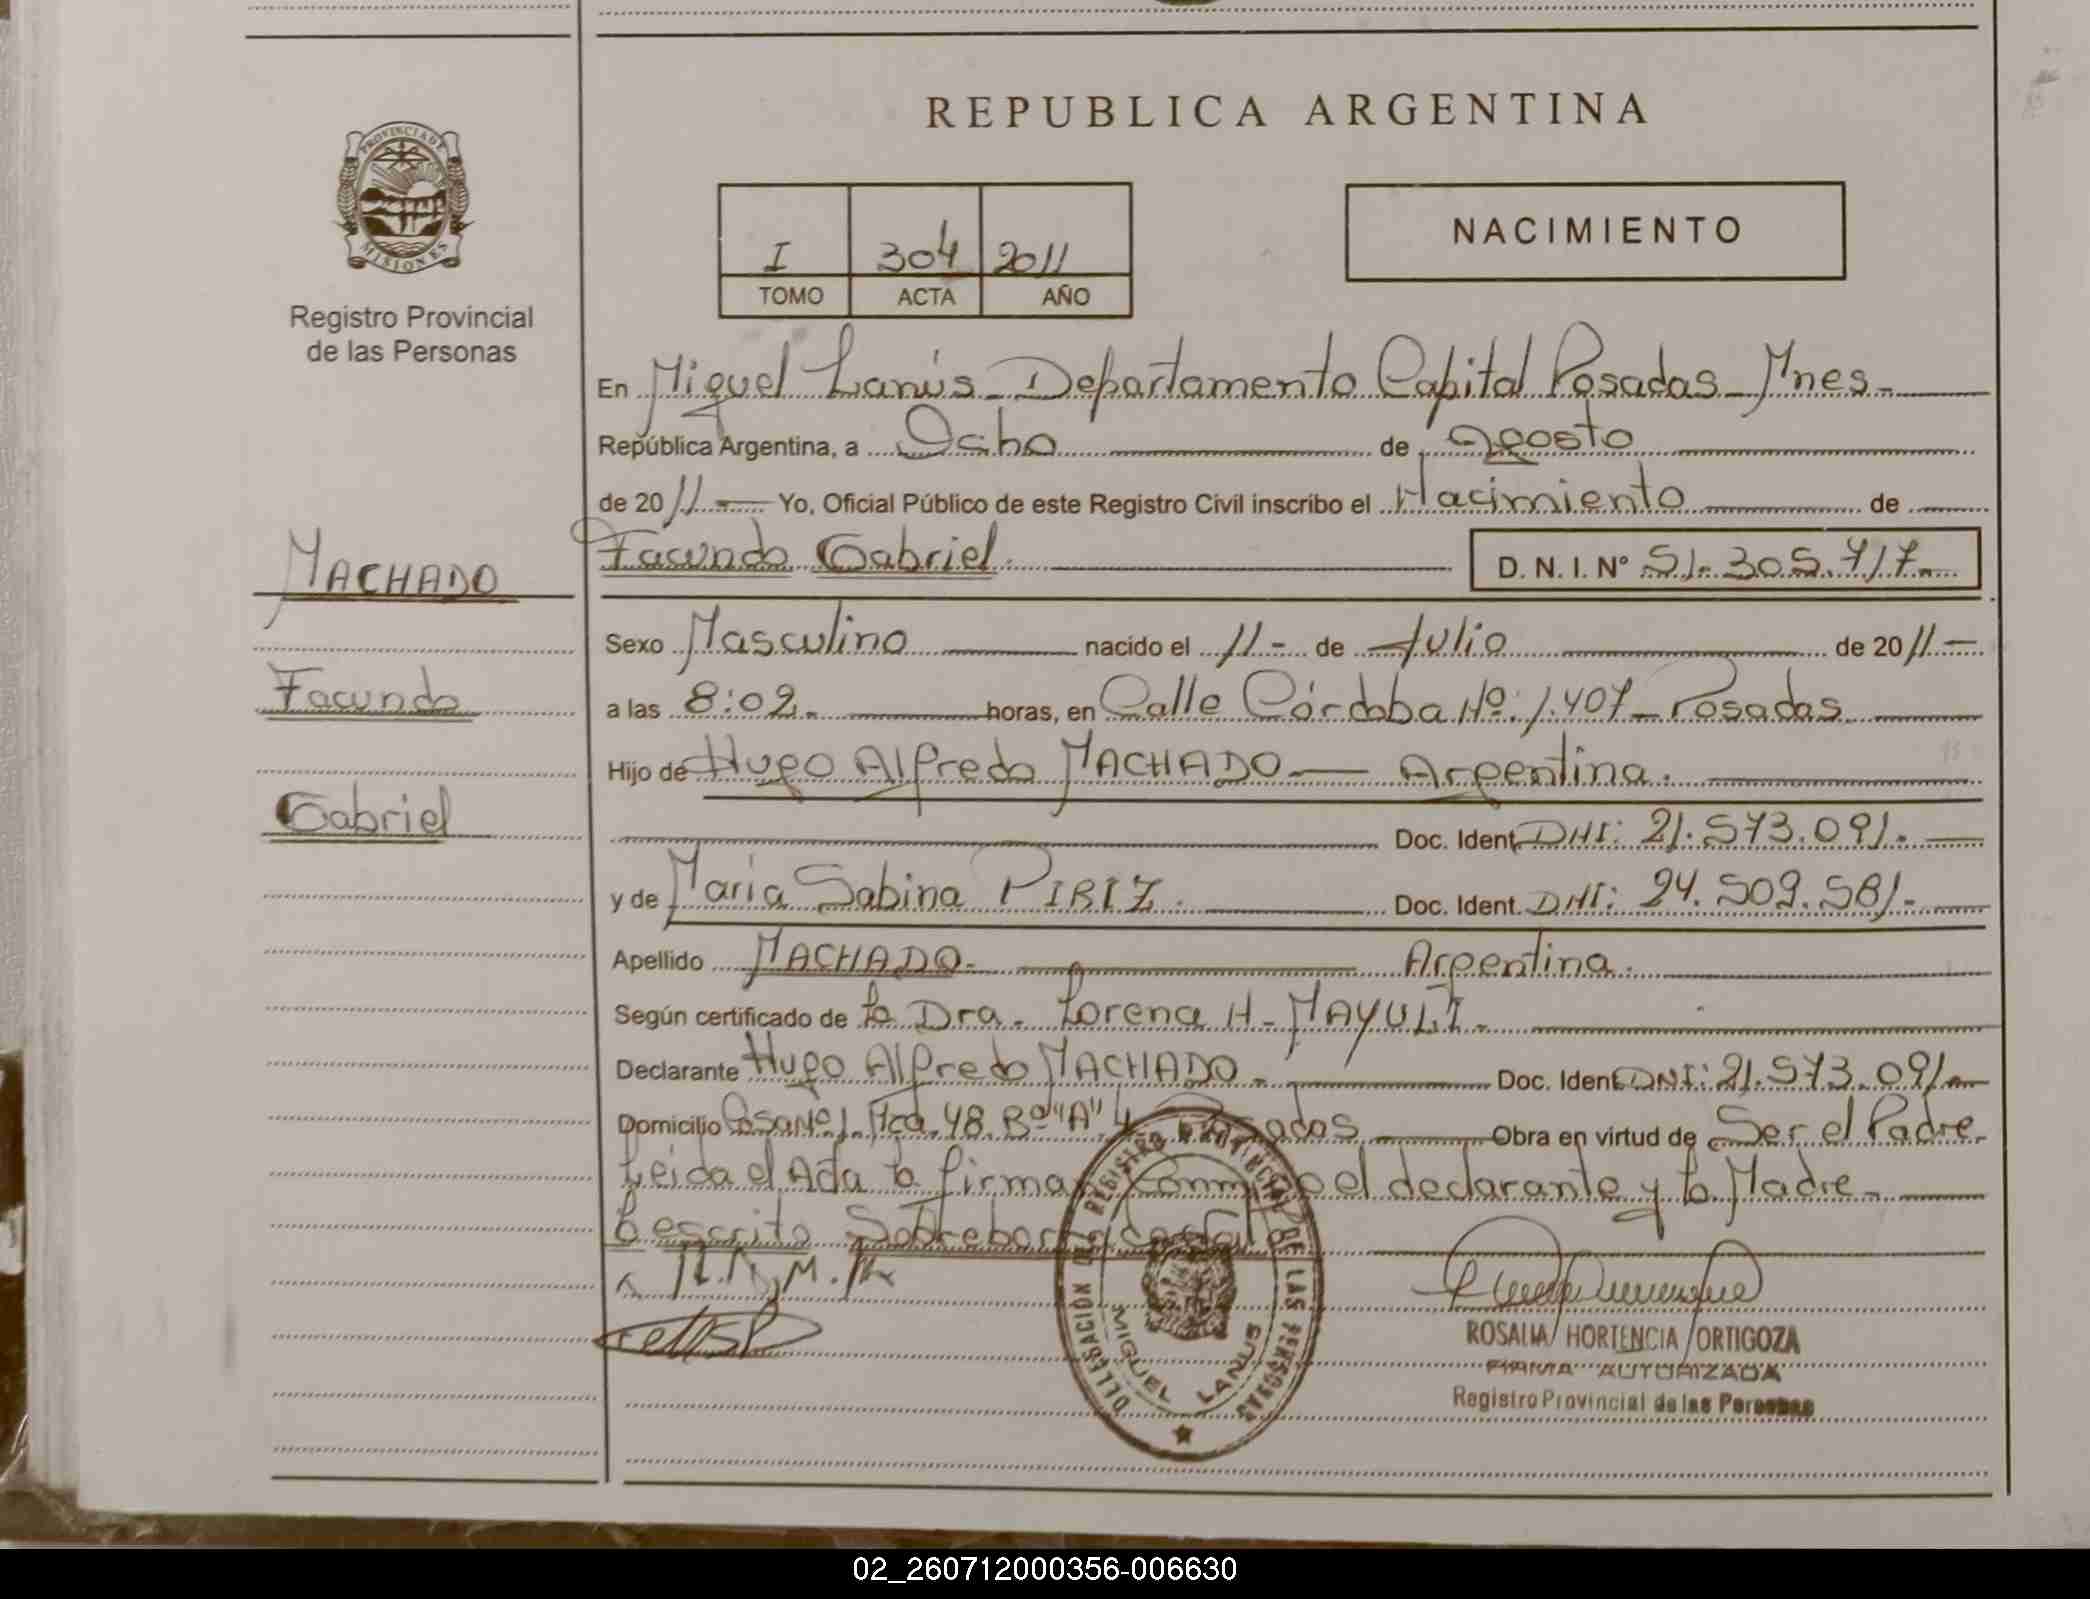 REPUBLICA ARGENTINA
PROVINCIA DE
MISIONES
Registro Provincial
de las Personas
I 304 2011
TOMO ACTA AÑO
NACIMIENTO
En Miguel Lanús - Departamento Capital Posadas - Mnes.
República Argentina, a Ocho de agosto
de 2011 Yo, Oficial Público de este Registro Civil inscribo el Nacimiento de
Facundo Gabriel D. N. I. N° 51.305.717.
MACHADO
Facundo
Gabriel
Sexo Masculino nacido el 11 - de Julio de 2011 -
a las 8:02. horas, en Calle Córdoba Nº: 1.407 - Posadas
Hijo de Hugo Alfredo MACHADO — Argentina.
Doc. Ident. DNI: 21.573.091.
y de Maria Sabina PIRIZ. Doc. Ident. DNI: 24.509.581.
Apellido MACHADO. Argentina.
Según certificado de la Dra. Lorena H. MAYULI.
Declarante Hugo Alfredo MACHADO. Doc. Ident. DNI: 21.573.091.
Domicilio Casa Nº 1. Mza. 48. Bº "A" 4 Obra en virtud de Ser el Padre.
Leida el Acta la firma el declarante y la Madre.
Lo escrito
DELEGACIÓN DEL REGISTRO PROVINCIAL DE LAS PERSONAS
MIGUEL LANUS
ROSALIA HORTENCIA ORTIGOZA
FIRMA AUTORIZADA
Registro Provincial de las Personas
02_260712000356-006630